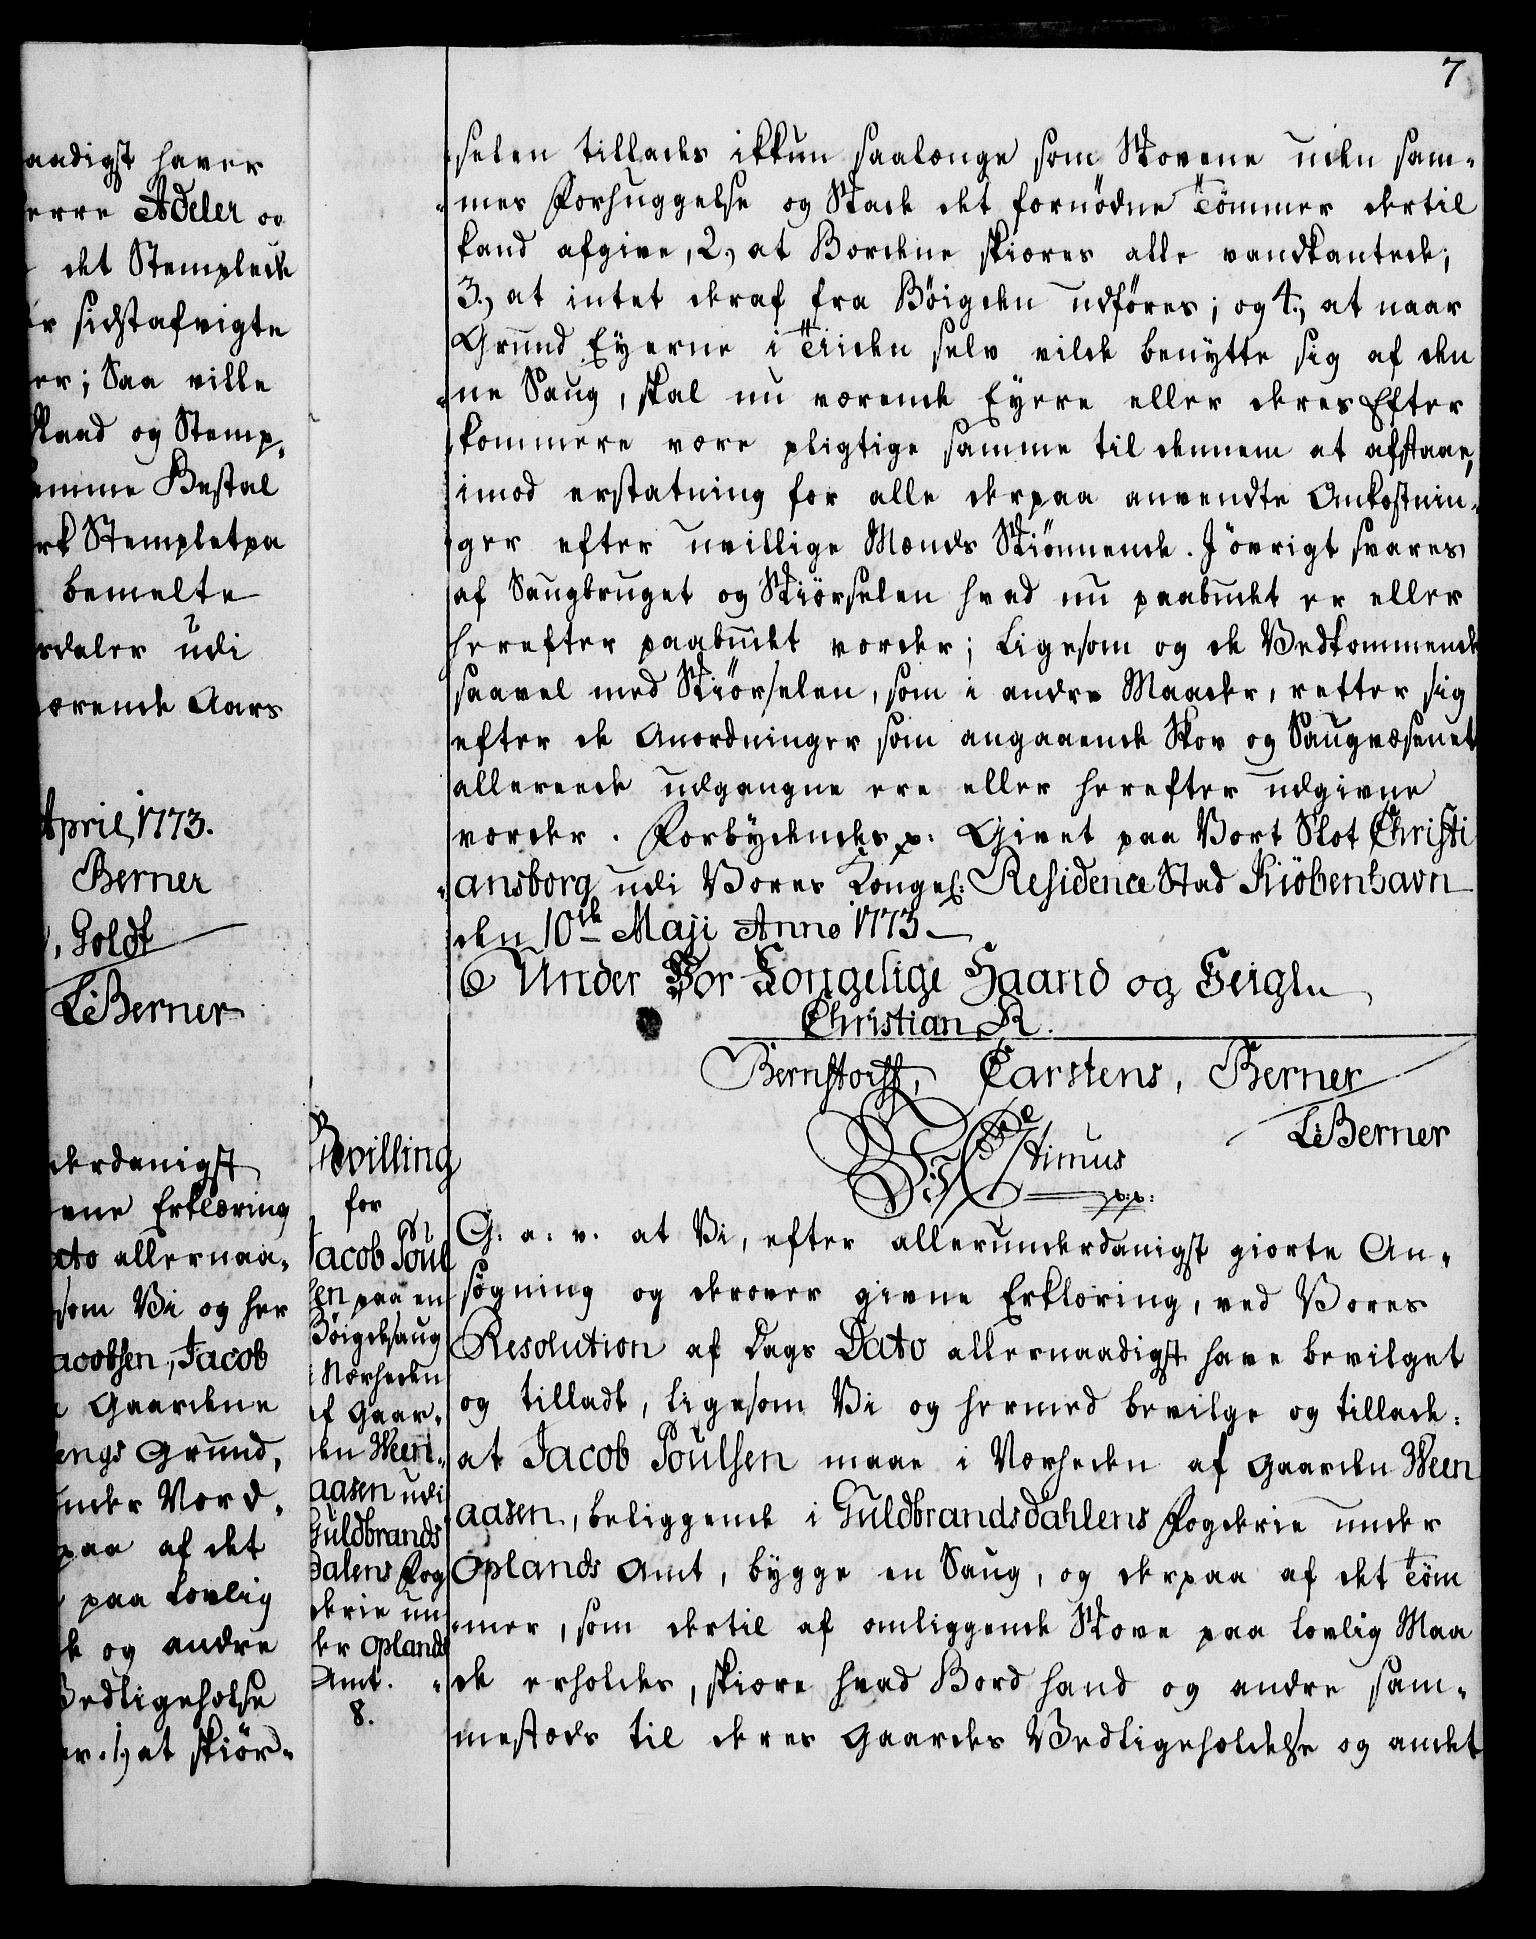 aadigst haver
erre Adeler og
det Stemplede
er sidstafvigte
er; Saa ville
Raad og Stemp,
emme Bestal
erk Stempletpa
bemelte
rdaler udi
ærende Aars
April, 1773.
Berner
, Goldt
L: Berner
derdanigst
vne Erklæring
ato allernaa,
som Vi og her
acobsen, Jacob
Gaardene
engs Grund,
under Værd,
paa af det
paa lovlig
de og andre
Vedligeholse
er. 1, at skiør,
Bevilling
for
Jacob Poul
sen paa en
Bøigdesaug
i Nærheden
af Gaar,
den Ween,
aasen udi
Guldbrands
dalens Fog
derie un
der Oplands
Amt.
8.
7
selen tillades ikkun saalænge som Skovene uden sam,
mes Forhuggelse og Skade det fornødne Tømmer dertil
kand afgive, 2, at Bordene skiæres alle vandkantede;
3, at intet deraf fra Bøigden udføres; og 4, at naar
Grund Eyerne i Tiiden selv vilde benytte sig af den
ne Saug, skal nu værende Eyere eller deres Efter
kommere være pligtige samme til dennem at afstaae,
imod erstatning for alle derpaa anvendte Omkostnin,
ger efter uvillige Mænds Skiønnende. I øvrigt svares
af Saugbruget og Skiørselen hvad nu paabudet er eller
herefter paabudet vorder; Ligesom og de Vedkommende
saavel med Skiørselen, som i andre Maader, retter sig
efter de Anordninger som angaaende Skov og Saugvæsenet
allerede udgangne ere eller herefter udgivne
vorder. Forbydendes p. Givet paa Vort Slot Christi
ansborg udi Vores Kongel: Residence Stad Kiöbenhavn
den 10de Maji Anno 1773.
Under Vor Kongelige Haand og Seigl.
Christian R.
Bernstorff, Carstens, Berner
L: Berner
Vi Christian den Syvende
p. p.
G. a. v. at Vi, efter allerunderdanigst giorte An,
søgning og derover givne Erklæring, ved Vores
Resolution af Dags Dato allernaadigst have bevilget
og tilladt, ligesom Vi og hermed bevilge og tillade:
at Jacob Poulsen maae i Nærheden af Gaarden Ween
aasen, beliggende i Guldbrandsdahlens Fogderie under
Oplands Amt, bygge en Saug, og derpaa af det Tøm
mer, som dertil af omliggende Skove paa lovlig Maa
de erholdes, skiære hvad Bord hand og andre sam,
mestæds til deres Gaardes Vedligeholdelse og andet